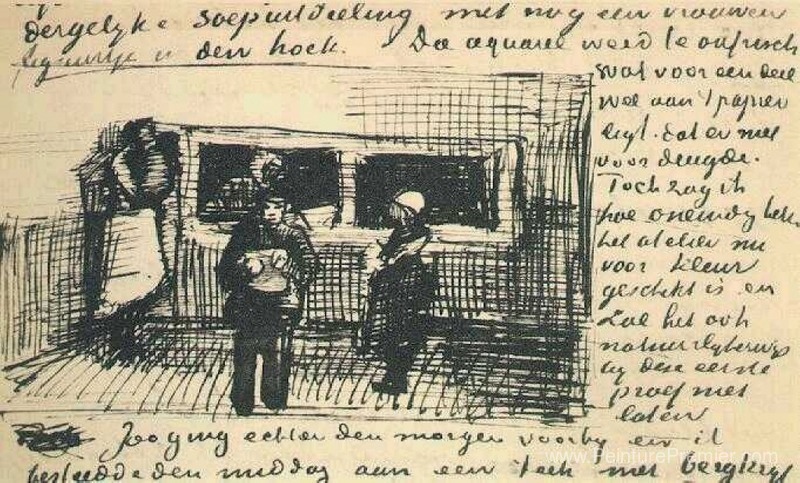 dergelyke soepuitdeeling met nog een vrouwen
figuurtje in den hoek. De aquarel werd te onfrisch
wat voor een deel
wel aan 't papier
ligt. dat er niet
voor deugde.
Toch zag ik
hoe oneindig
het atelier nu
voor kleur
geschikt is en
zal het ook
by deze eerste
proef niet
laten
Zoo ging echter den morgen voorby en ik
besteedde den middag aan een teek met bergkryt
www.PeinturePremier.com